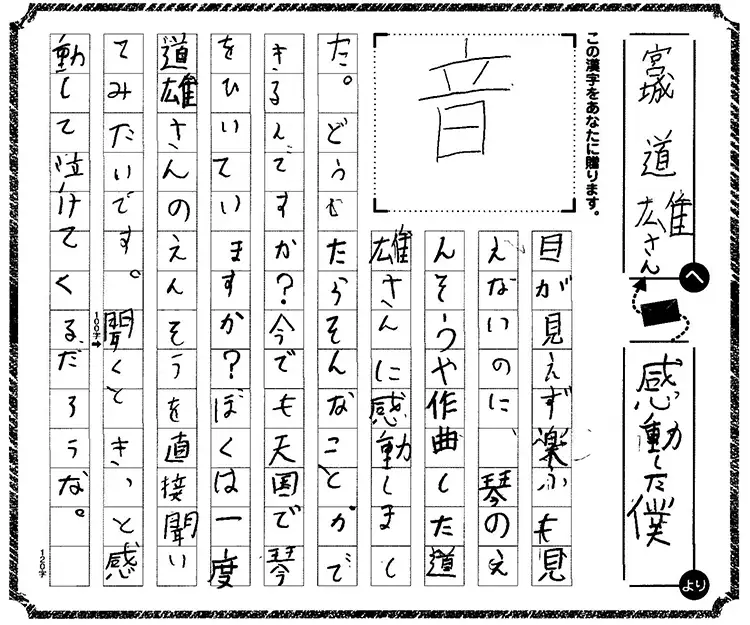 宮城 道雄さん
へ
感動した僕
より
この漢字をあなたに贈ります。
音
目が見えず楽ふも見
えないのに、琴のえ
んそうや作曲した道
雄さんに感動しまし
た。どうしたらそんなことがで
きるんですか?今でも天国で琴
をひいていますか?ぼくは一度
道雄さんのえんそうを直接聞い
てみたいです。聞くときっと感
100字
動して泣けてくるだろうな。
120字